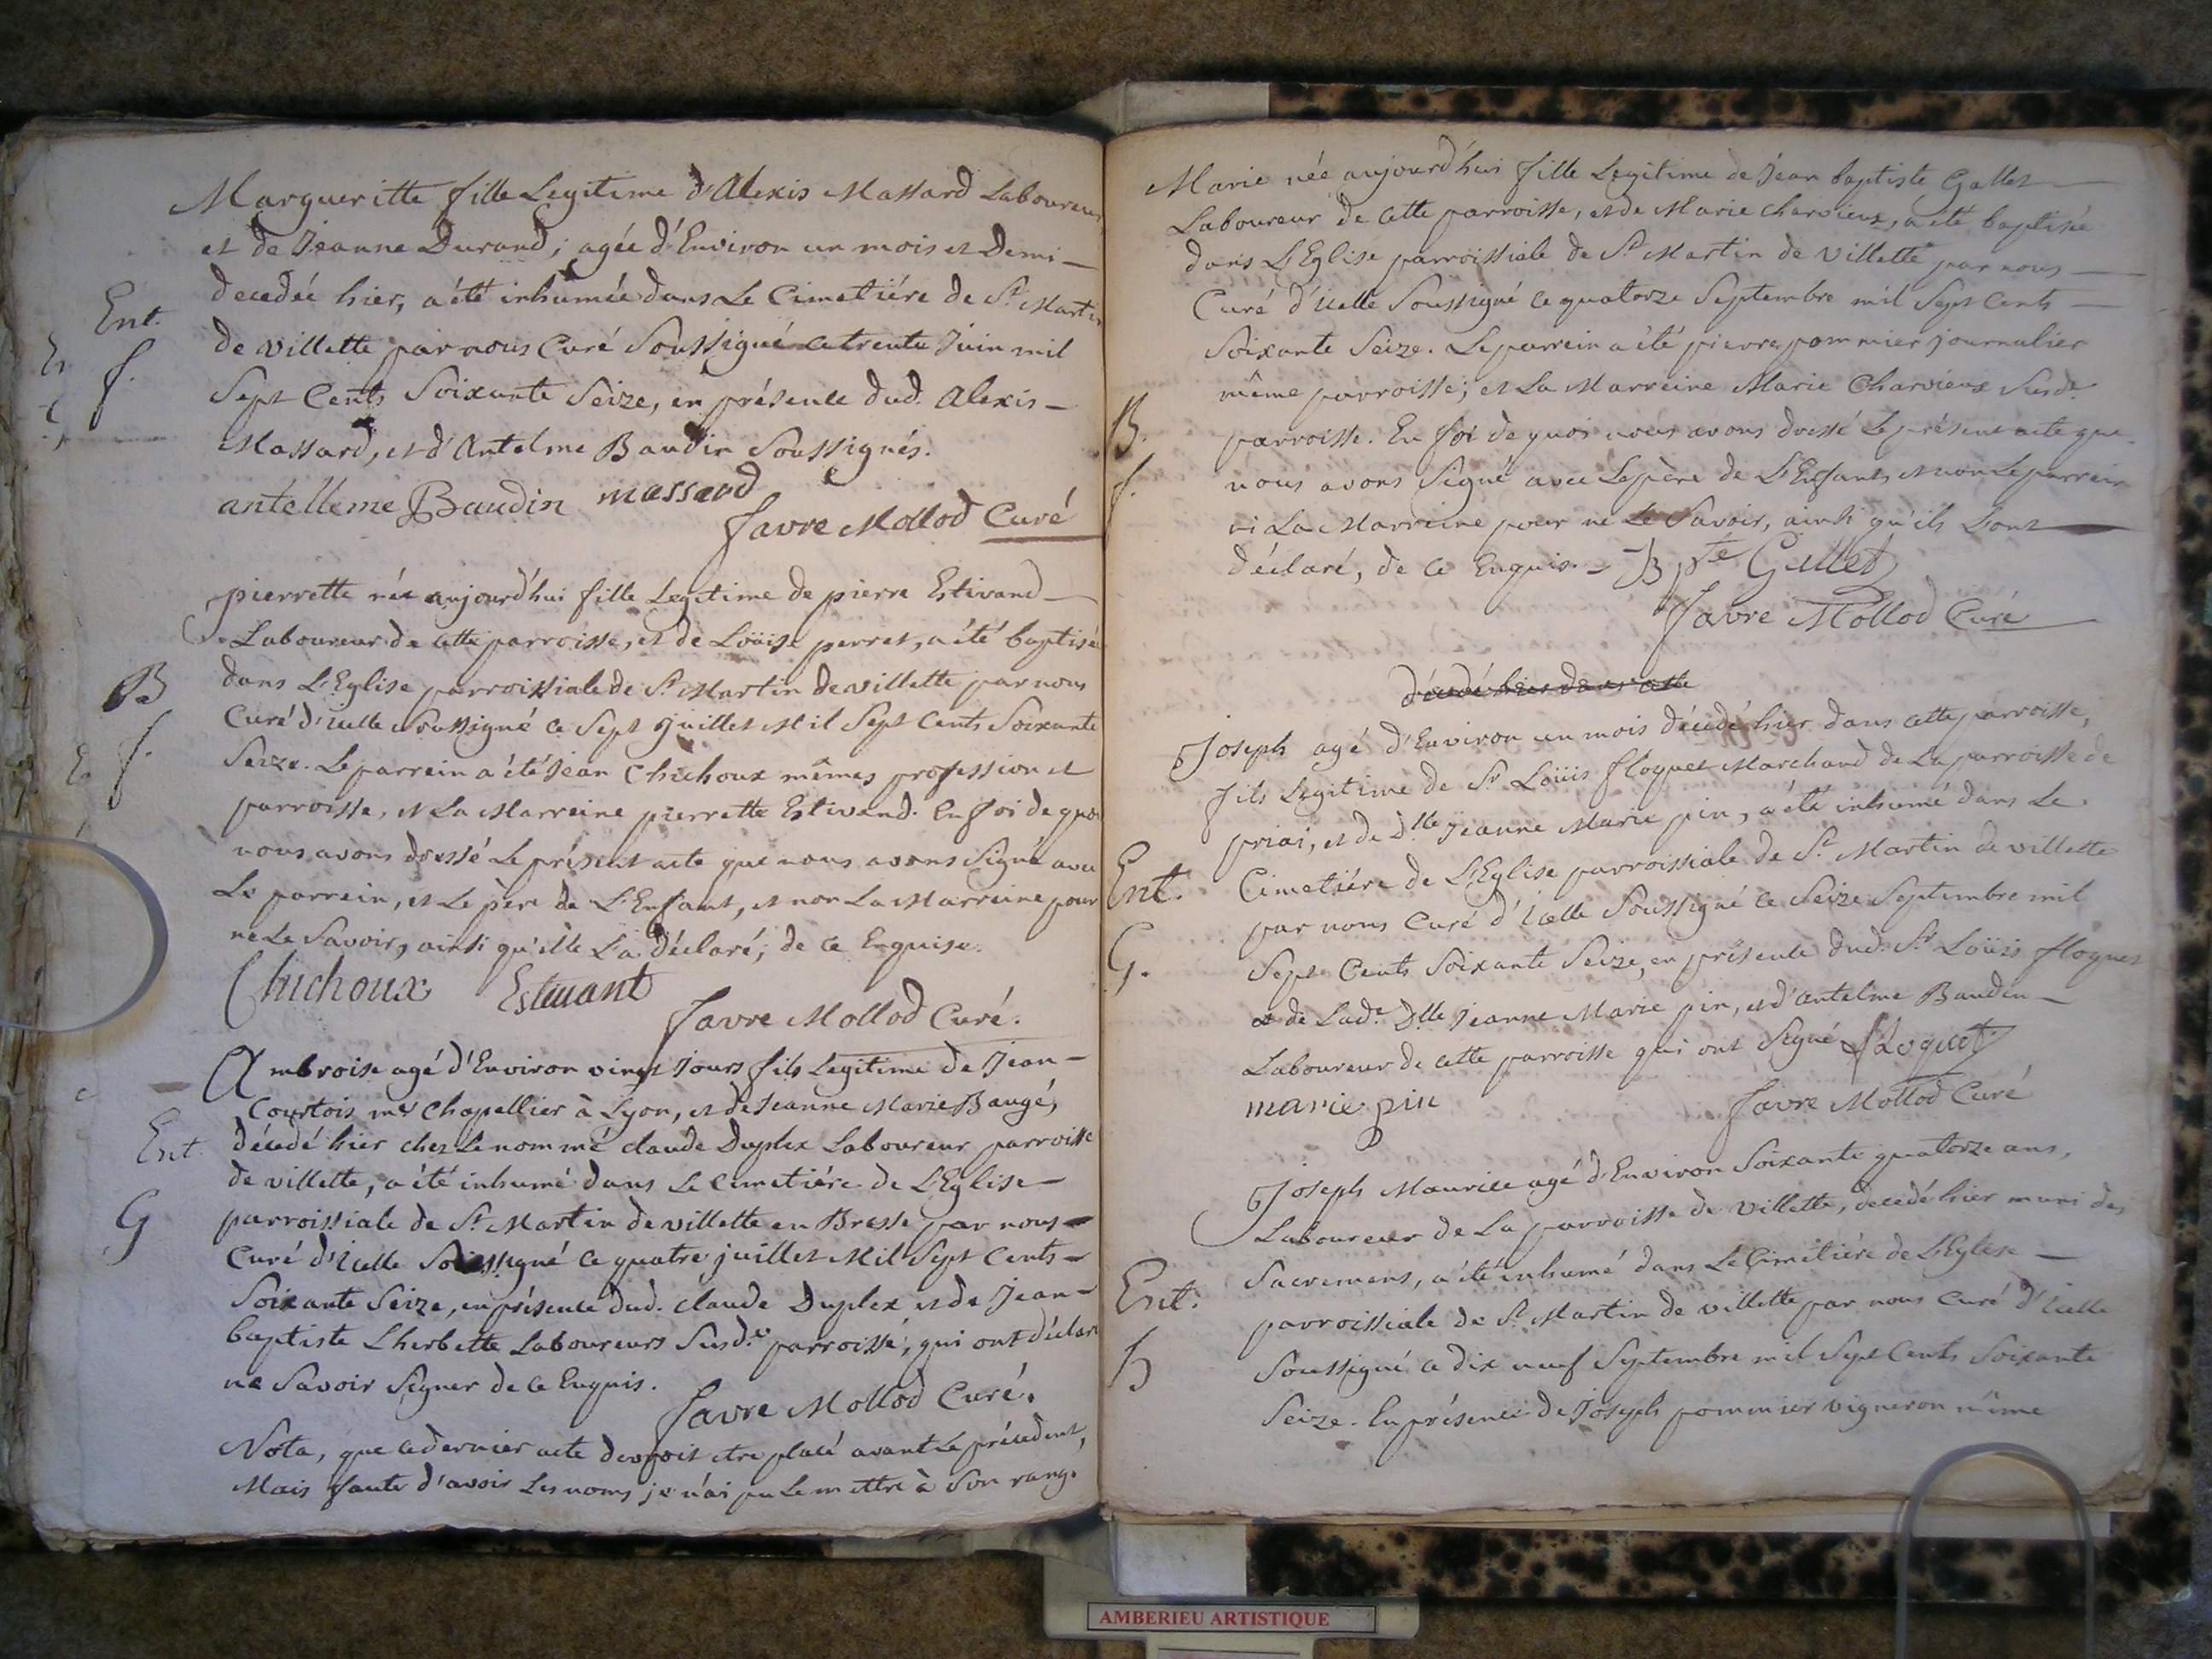 Margueritte fille Legitime d'Alexis Massard Laboureur
et de Jeanne Durand; agée d'Environ un mois et Demi –
decedée hier, a été inhumée dans Le Cimetiére de St. Martin
Ent.
de villette par nous Curé Soussigné ce trente Juin mil
f.
Sept Cents Soixante Seize, en présence dud. Alexis –
Massard, et d'Antelme Baudin Soussignés.
antelleme Baudin massard
favre Mollod Curé
pierrette née aujourd'hui fille Legitime de pierre Estivand –
Laboureur de cette parroisse, et de Loüise perret, a été baptisée
B
dans L'Eglise parroissiale de St. Martin de villette par nous
Curé d'icelle Soussigné ce Sept Juillet Mil Sept Cents Soixante
f.
Seize. Le parrein a été Jean Chichoux mêmes profession et
parroisse, et La Marreine pierrette Estivand. En foi de quoi
nous avons dressé Le présent acte que nous avons Signé avec
Le parrein, et Le père de L'Enfant, et non La Marreine pour
ne Le Savoir, ainsi qu'elle L'a déclaré, de ce Enquise.
Chichoux Estivant
favre Mollod Curé.
Ambroise agé d'Environ vingt Jours fils Legitime de Jean –
Courtois me Chapellier à Lyon, et de Jeanne Marie Baugé,
Ent.
décedé hier chez Le nommé claude Duplex Laboureur parroisse
de villette, a été inhumé dans Le cimetiére de L'Eglise –
G
parroissiale de St. Martin de villette en Bresse par nous –
Curé d'icelle Soussigné ce quatre juillet Mil Sept Cents –
Soixante Seize, en présence dud. claude Duplex et de Jean –
baptiste Lherbette Laboureurs Susde. parroisse, qui ont déclaré
ne Savoir Signer de ce Enquis.
favre Mollod Curé.
Nota, que ce dernier acte devroit etre placé avant Le précedent,
Mais faute d'avoir Les noms je n'ai pu Le mettre à Son rang.
Marie née aujourd'hui fille Legitime de Jean baptiste Gallet –
Laboureur de cette parroisse, et de Marie charvieux, a été baptisée
dans L'Eglise parroissiale de St. Martin de villette par nous –
Curé d'icelle Soussigné ce quatorze Septembre mil Sept Cents –
Soixante Seize. Le parrein a été pierre pommier journalier
même parroisse; et La Marreine Marie Charvieux Susde.
B.
parroisse. En foi de quoi nous avons dressé Le présent acte que
f.
nous avons Signé avec Le père de L'Enfant, et non Le parrein
ni La Marreine pour ne Le Savoir, ainsi qu'ils L'ont –
déclaré, de ce Enquis – B pte Gallet
favre Mollod Curé
décedé hier dans cette
Joseph agé d'Environ un mois décedé hier dans cette parroisse,
fils Legitime de Sr. Loüis floquet Marchand de La parroisse de
priai, et de dlle Jeanne Marie pin, a été inhumé dans Le
Ent.
Cimetiére de L'Eglise parroissiale de St. Martin de villette
par nous Curé d'icelle Soussigné ce Seize Septembre mil
G.
Sept Cents Soixante Seize, en présence dud. Sr. Loüis floquet
et de Lade. Dlle Jeanne Marie pin, et d'Antelme Baudin –
Laboureur de cette parroisse qui ont Signé floquet
marie pin favre Mollod Curé
Joseph Maurice agé d'Environ Soixante quatorze ans,
Laboureur de La parroisse de villette, decedé hier muni des
Sacremens, a été inhumé dans Le Cimetiére de L'Eglise –
Ent.
parroissiale de St. Martin de villette par nous Curé d'icelle
Soussigné ce dix neuf Septembre mil Sept Cents Soixante
Seize. En présence de Joseph pommier vigneron même
AMBERIEU ARTISTIQUE